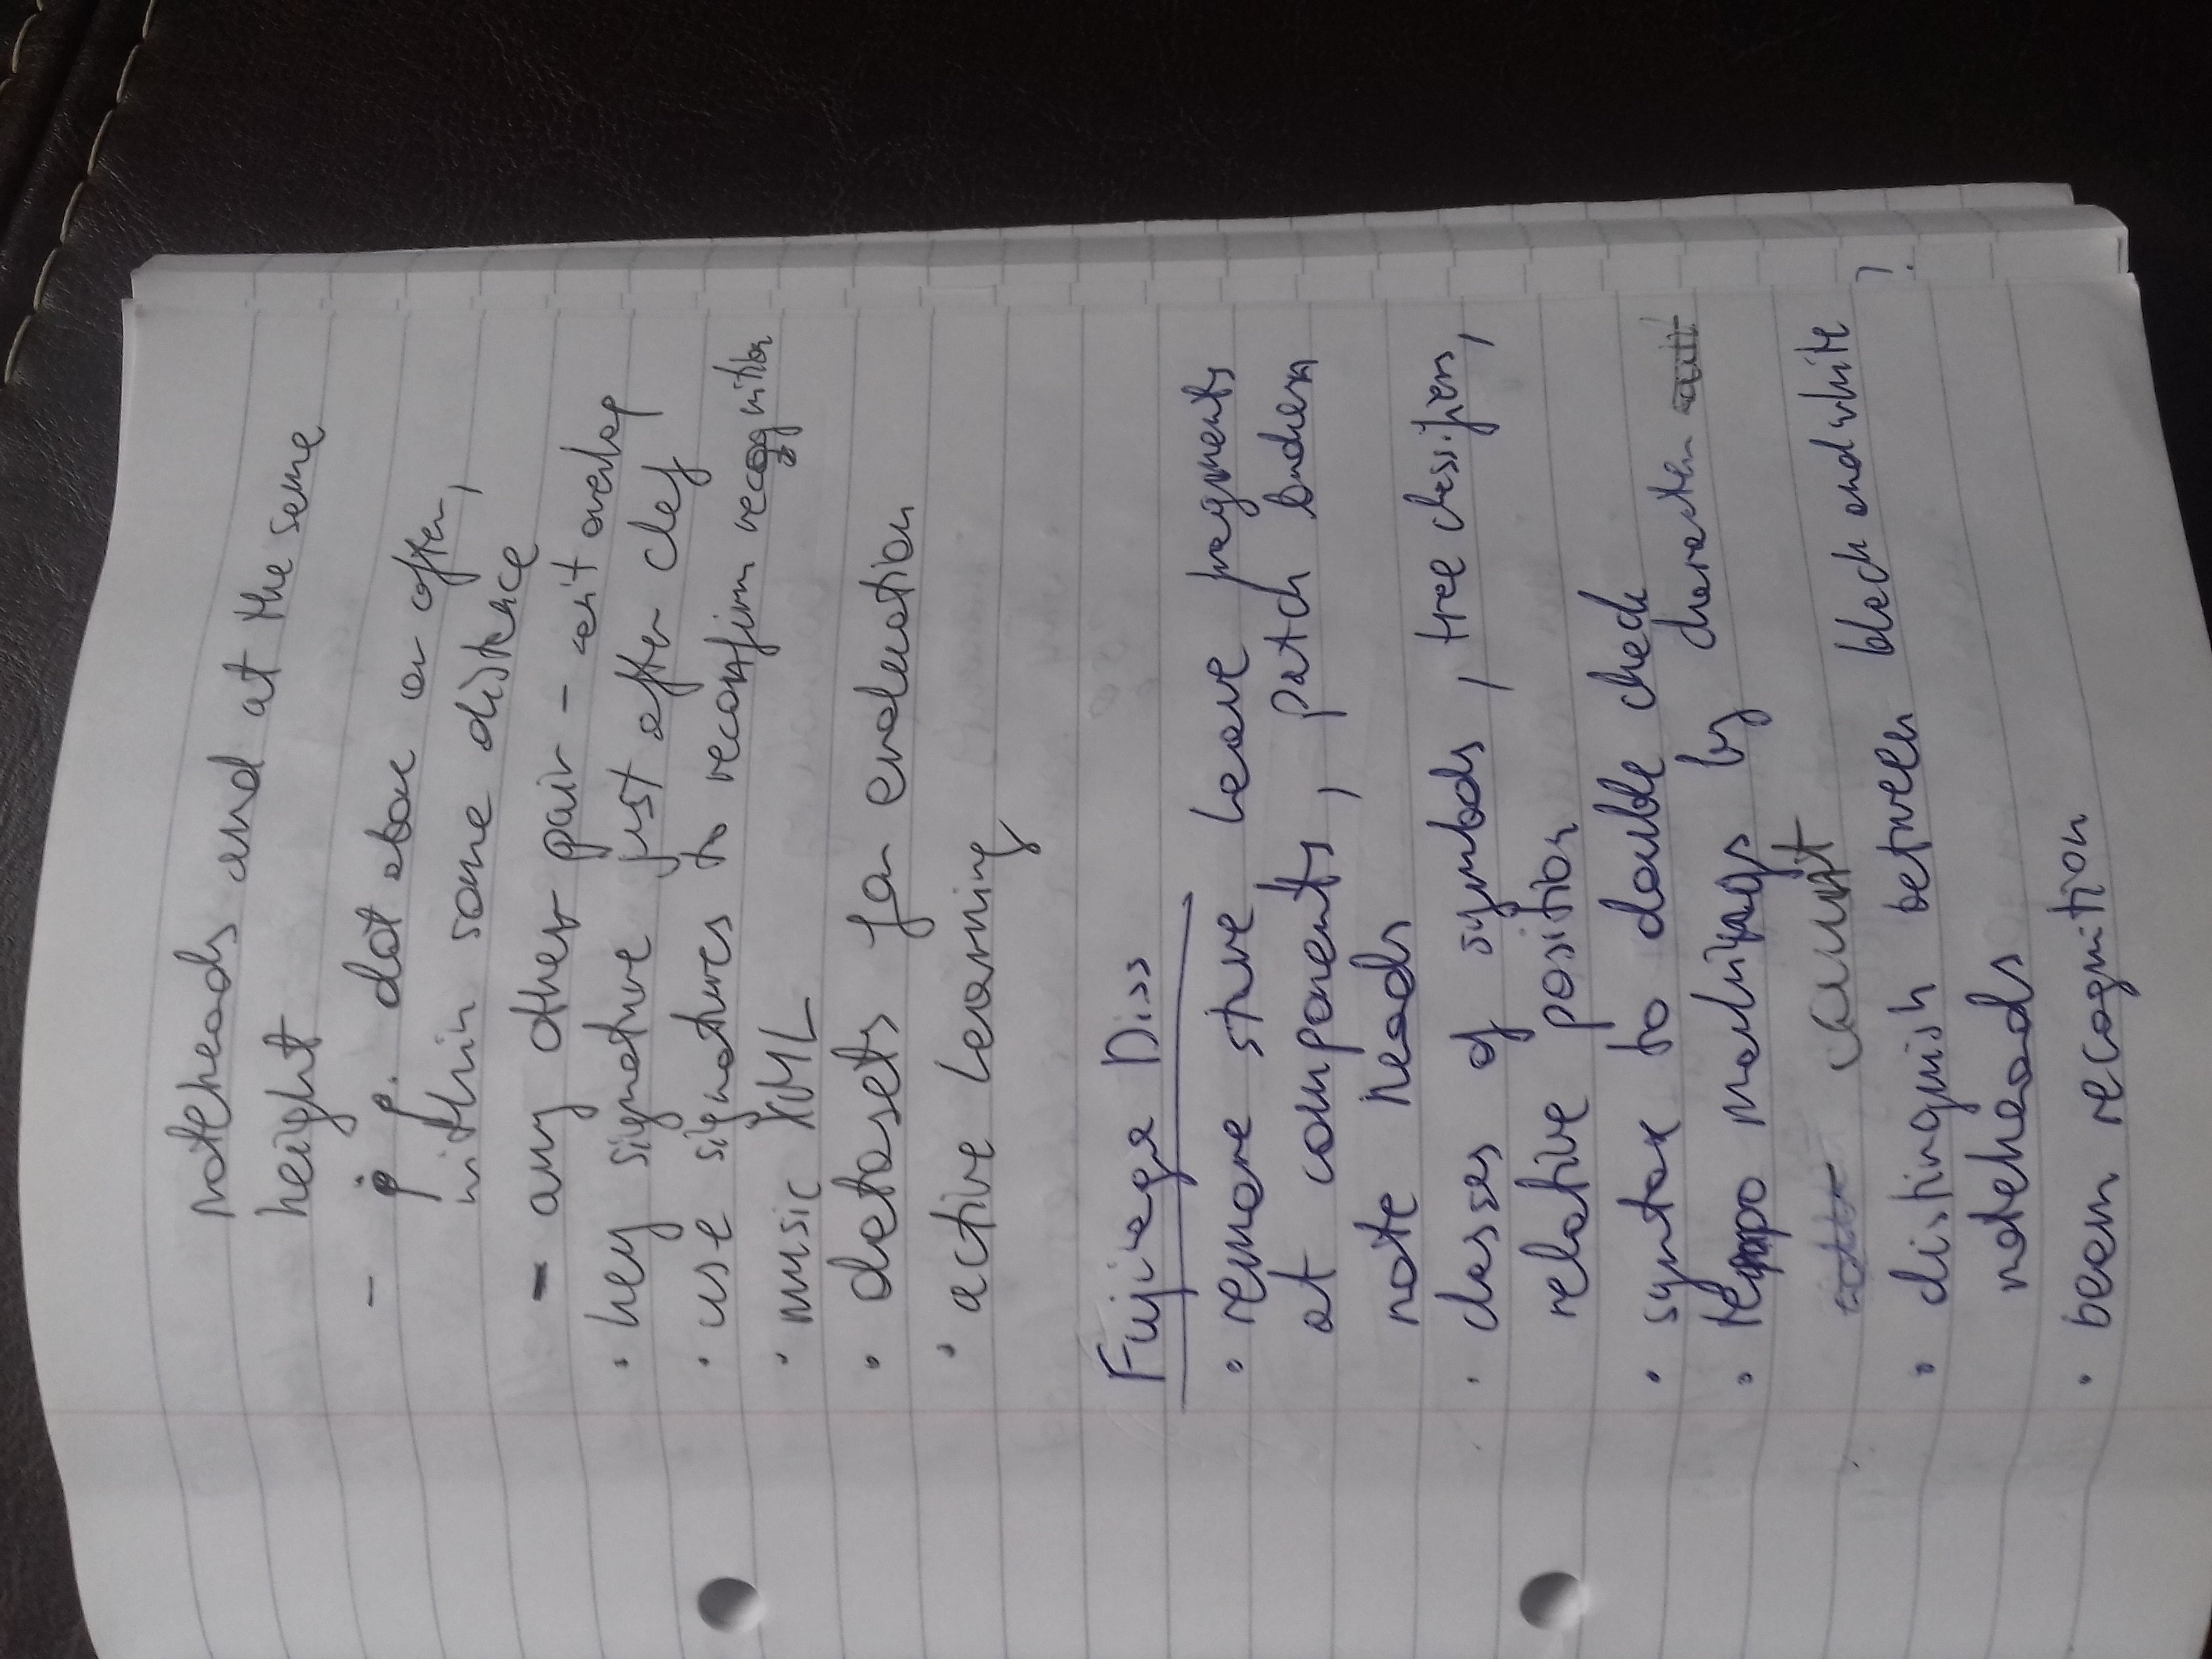 noteheads and at the same
height
- dot above or after,
within some distance
- any other pair - can't overlap
· key signature just after clef
· use signatures to reconfirm recognition
· music XML
· datasets for evaluation
· active learning
Fujinaga Diss
· remove stave, leave fragments
at components, patch broken
note heads
· classes of symbols, tree classifiers,
relative position
· syntax to double check
· tempo markings by character
count
· distinguish between black and white ?
noteheads
· beam recognition